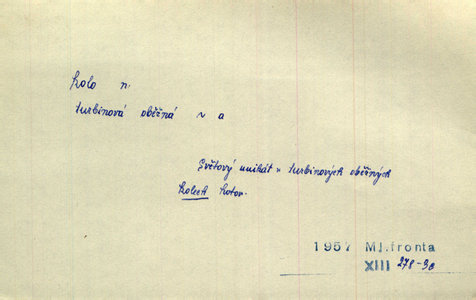 kolo n.
turbinová oběžná ~ a
Světový unikát v turbinových oběžných
kolech kotov.
1957 Ml.fronta
XIII 278-3c